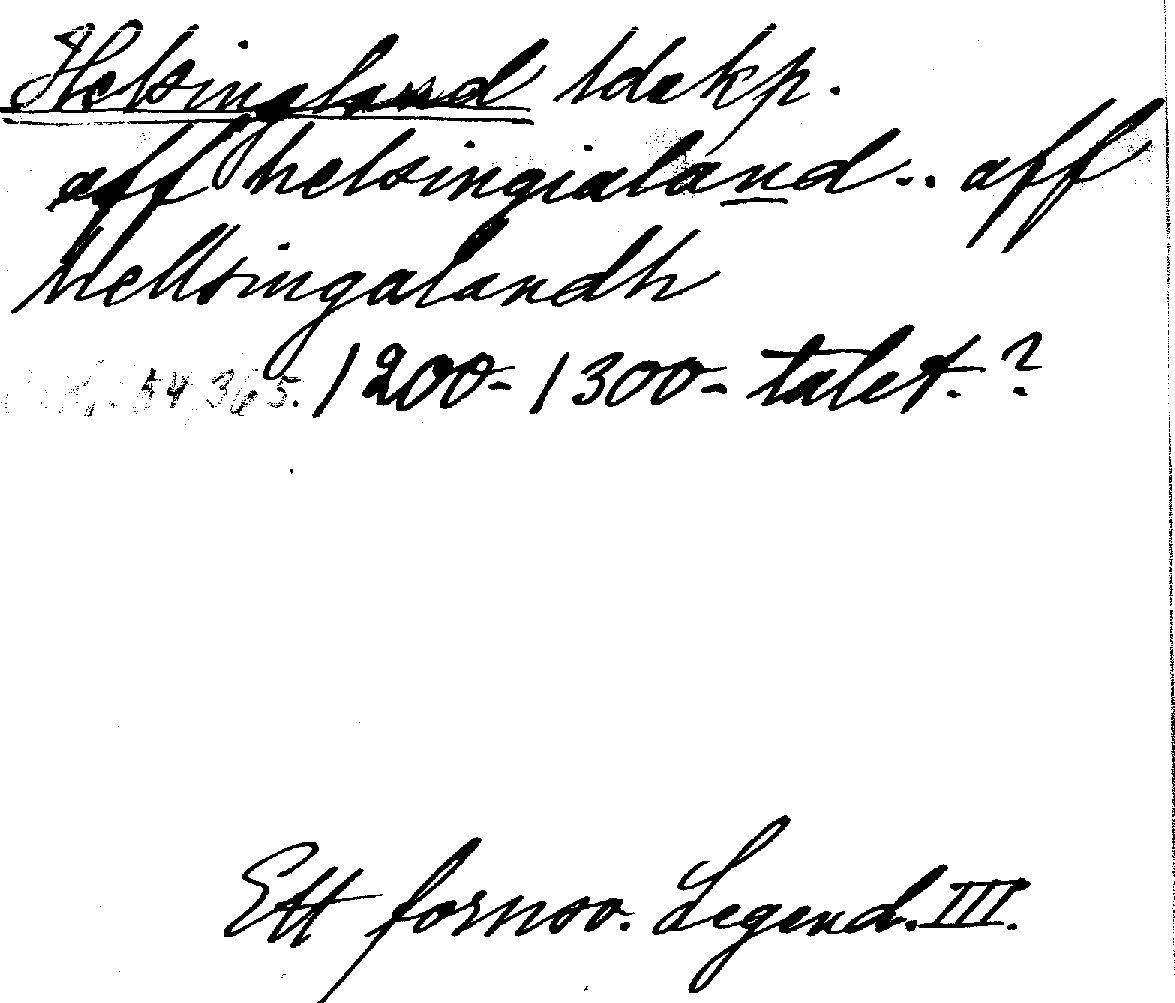 Helsingland ldskp.
aff helsingialand.. aff
hellsingalandh
54, 365. 1200-1300-talet.?
Ett fornsv. Legend. III.